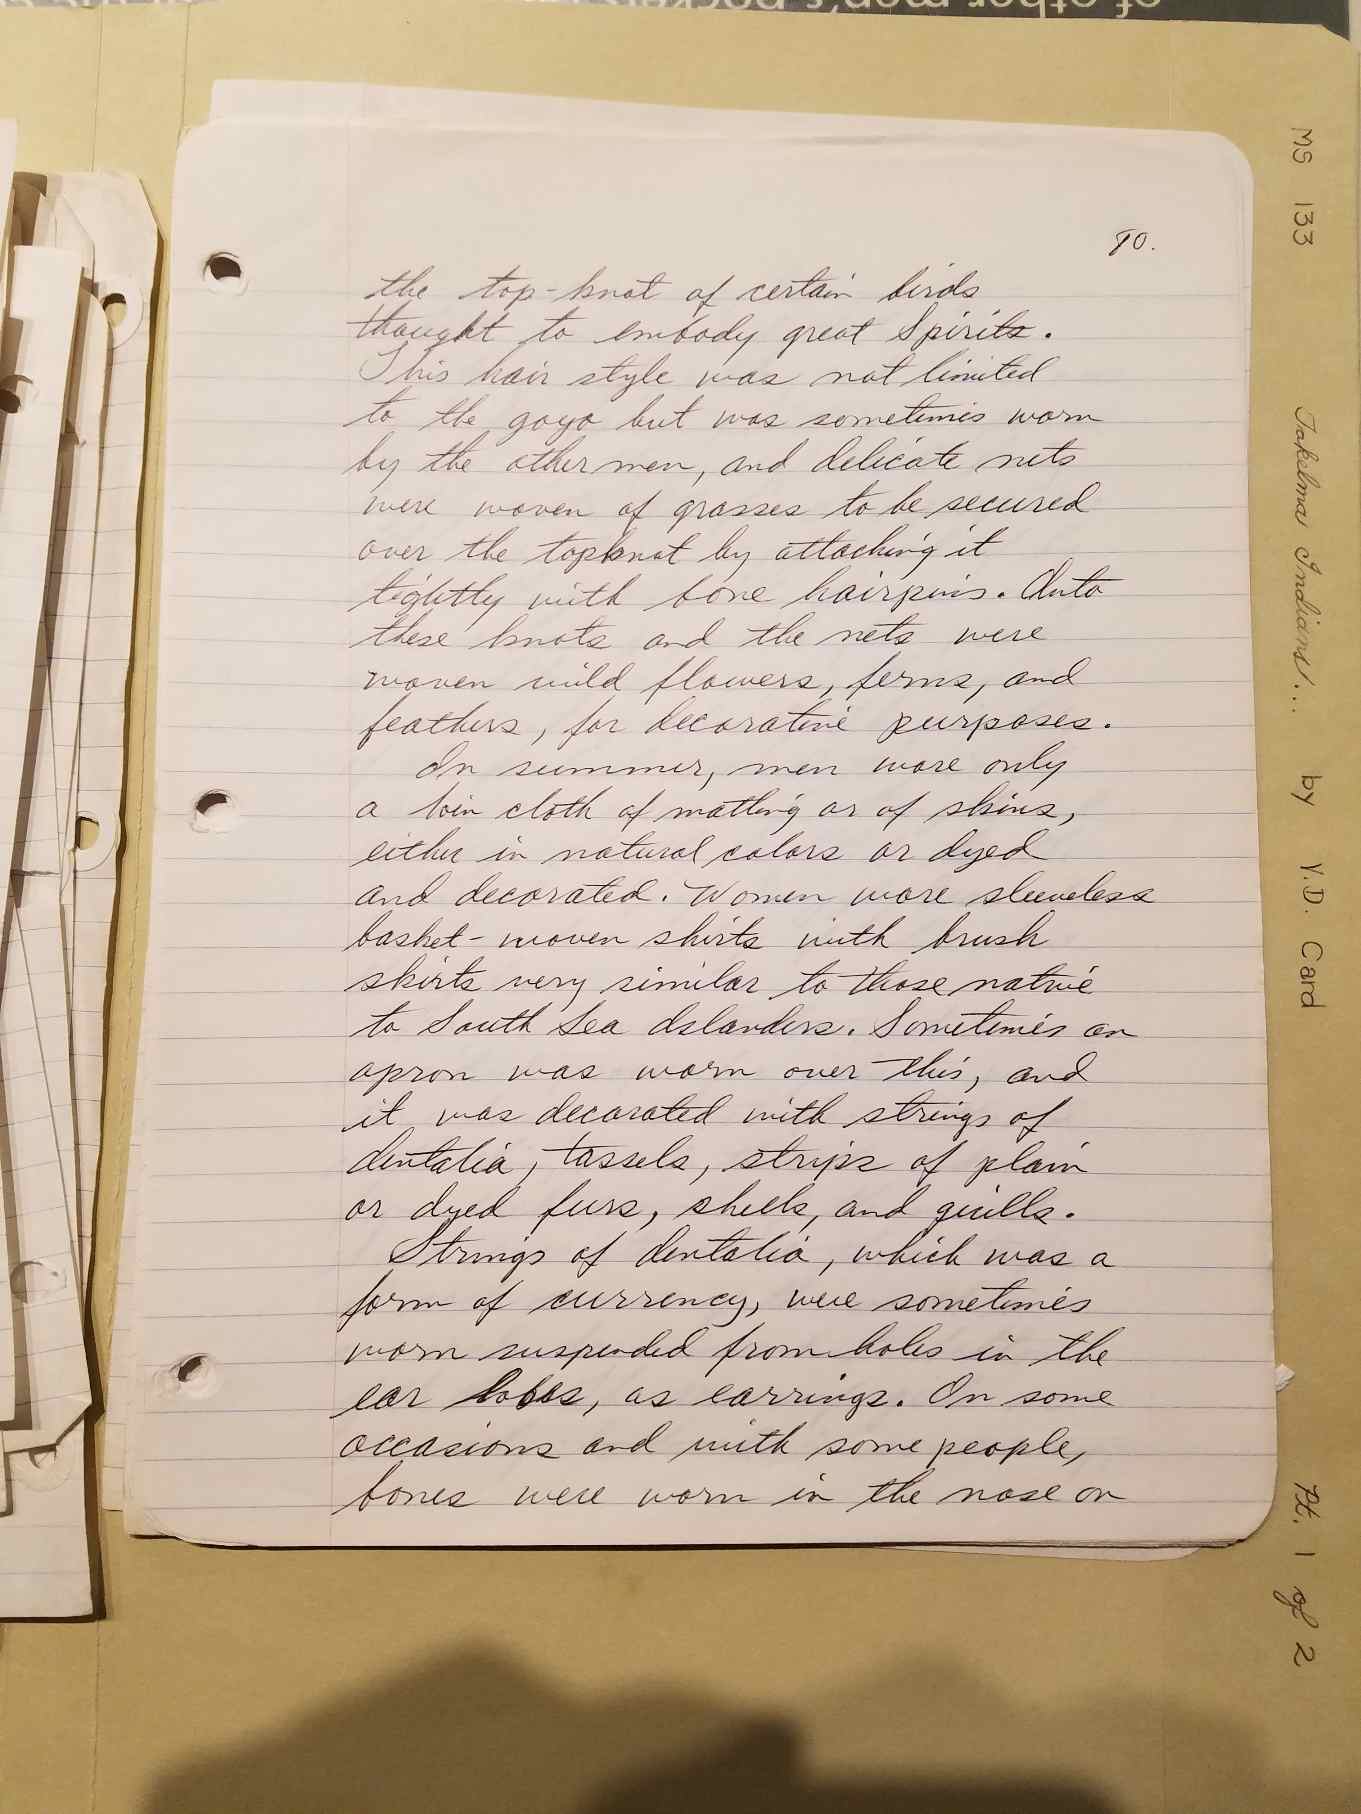 of other men's pockets
90.
the top-knot of certain birds
thought to embody great Spirits.
This hair style was not limited
to the goyo but was sometimes worn
by the other men, and delicate nets
were woven of grasses to be secured
over the topknot by attaching it
tightly with bone hairpins. Into
these knots and the nets were
woven wild flowers, ferns, and
feathers, for decorative purposes.
In summer, men wore only
a loin cloth of matting or of skins,
either in natural colors or dyed
and decorated. Women wore sleeveless
basket-woven shirts with brush
skirts very similar to those native
to South Sea Islanders. Sometimes an
apron was worn over this, and
it was decorated with strings of
dentalia, tassels, strips of plain
or dyed furs, shells, and quills.
Strings of dentalia, which was a
form of currency, were sometimes
worn suspended from holes in the
ear lobes, as earrings. On some
occasions and with some people,
bones were worn in the nose on
MS 133 Takelmas Indians... by Y.D. Card Pt. 1 of 2